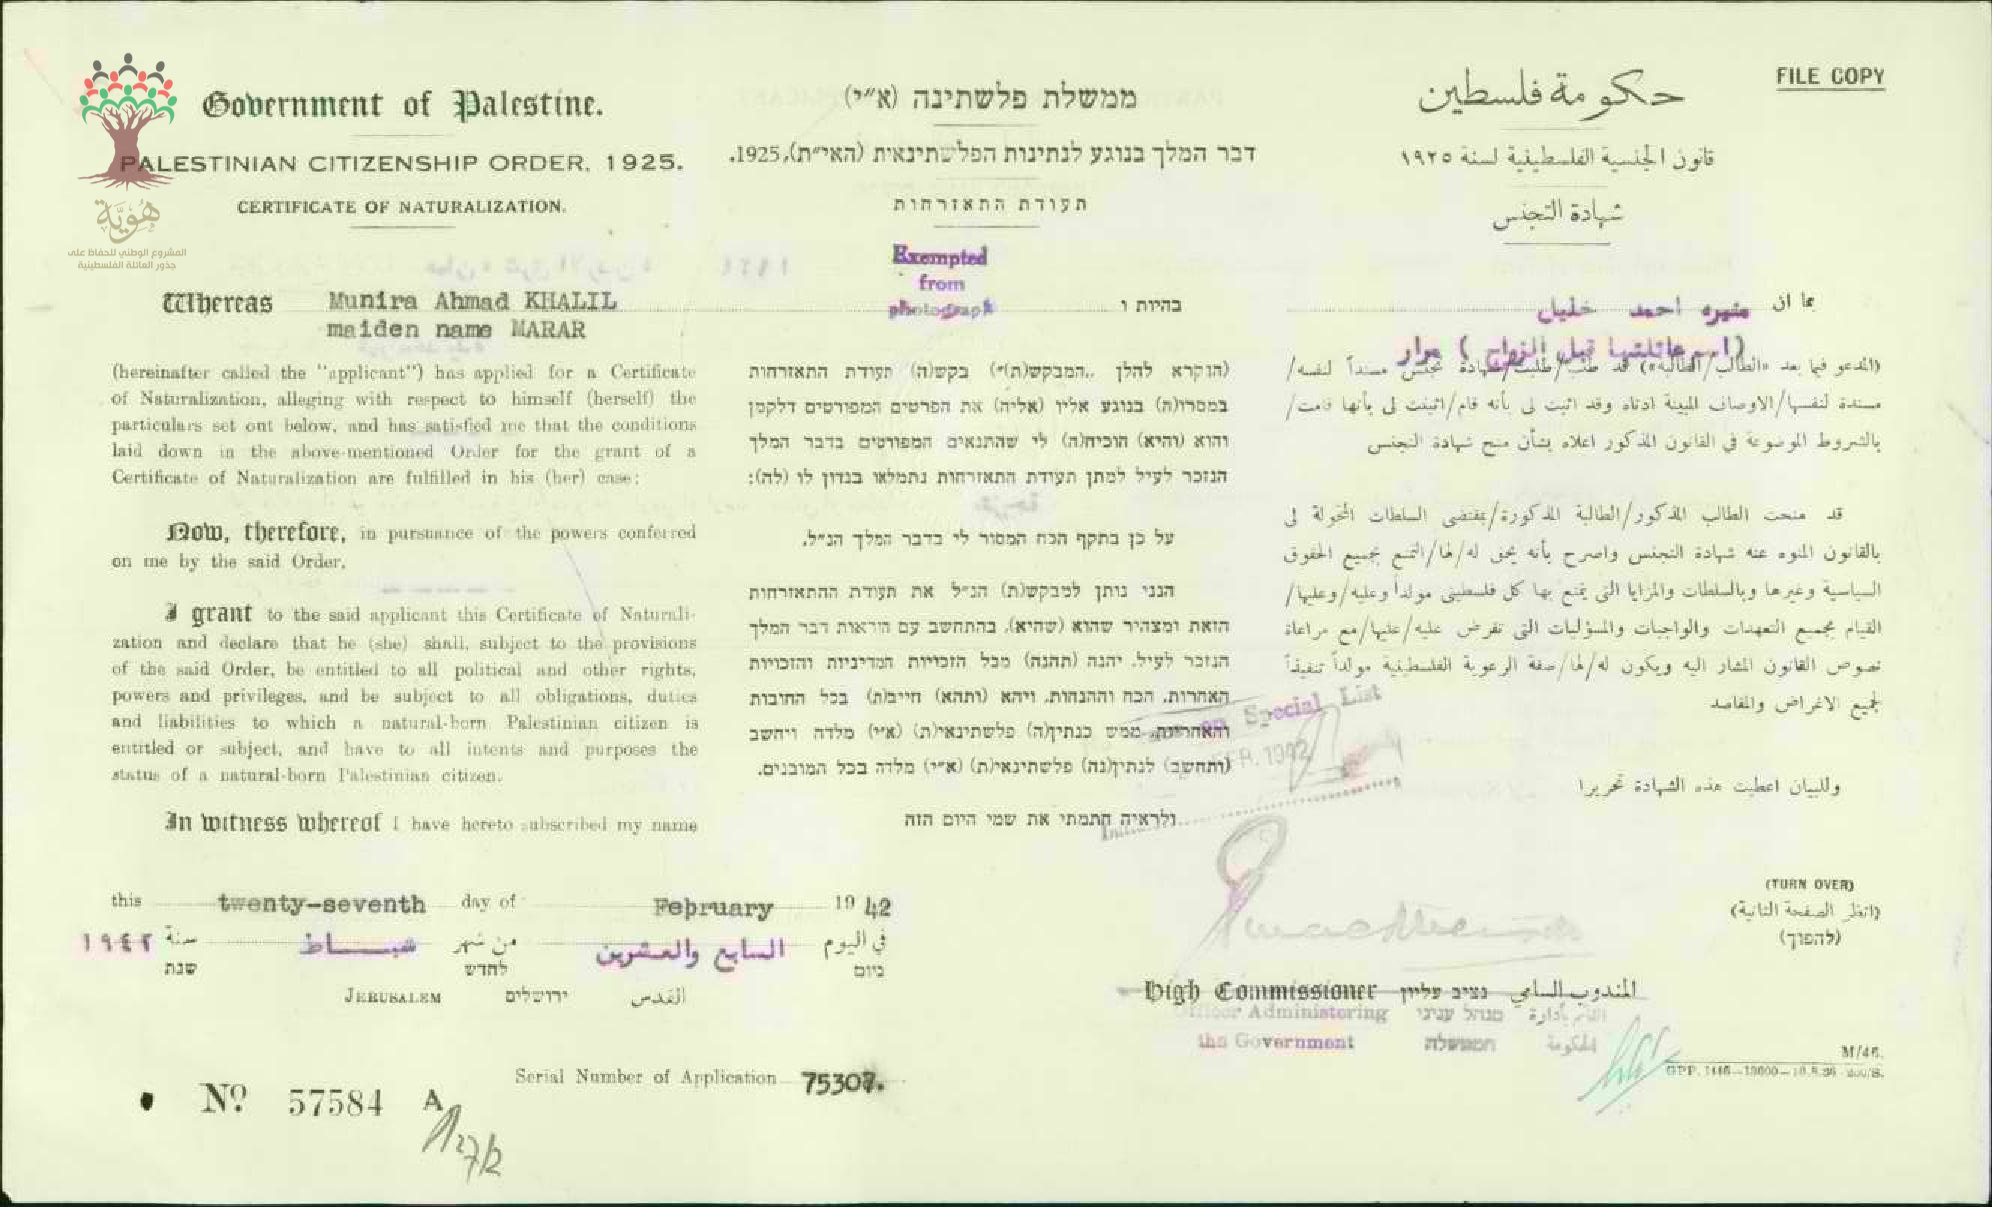 FILE COPY
Government of Palestine.
PALESTINIAN CITIZENSHIP ORDER, 1925.
CERTIFICATE OF NATURALIZATION.
ממשלת פלשתינה (א״י)
דבר המלך בנוגע לנתינות הפלשתינאית (האי״ת), 1925.
תעודת התאזרחות
حكومة فلسطين
قانون الجنسية الفلسطينية لسنة ١٩٢٥
شهادة التجنس
هُويّة
المشروع الوطني للحفاظ على
جذور العائلة الفلسطينية
Exempted
from
photograph
Whereas Munira Ahmad KHALIL
maiden name MARAR
(hereinafter called the "applicant") has applied for a Certificate
of Naturalization, alleging with respect to himself (herself) the
particulars set out below, and has satisfied me that the conditions
laid down in the above-mentioned Order for the grant of a
Certificate of Naturalization are fulfilled in his (her) case:
Now, therefore, in pursuance of the powers conferred
on me by the said Order,
I grant to the said applicant this Certificate of Naturali-
zation and declare that he (she) shall, subject to the provisions
of the said Order, be entitled to all political and other rights,
powers and privileges, and be subject to all obligations, duties
and liabilities to which a natural-born Palestinian citizen is
entitled or subject, and have to all intents and purposes the
status of a natural-born Palestinian citizen.
In witness whereof I have hereto subscribed my name
בהיות ו
(הנקרא להלן ,,המבקש(ת)״) בקש(ה) תעודת התאזרחות
במסרו(ה) בנוגע אליו (אליה) את הפרטים המפורטים דלקמן
והוא (והיא) הוכיח(ה) לי שהתנאים המפורטים בדבר המלך
הנזכר לעיל למתן תעודת התאזרחות נתמלאו בנדון לו (לה):
על כן בתקף הכח המסור לי בדבר המלך הנ״ל,
הנני נותן למבקש(ת) הנ״ל את תעודת ההתאזרחות
הזאת ומצהיר שהוא (שהיא), בהתחשב עם הוראות דבר המלך
הנזכר לעיל, יהנה (תהנה) מכל הזכויות המדיניות והזכויות
האחרות, הכח וההנחות, ויהא (ותהא) חייב(ת) בכל החובות
והאחריות, ממש כנתין(ה) פלשתינאי(ת) (א״י) מלדה ויחשב
(ותחשב) לנתין(נה) פלשתינאי(ת) (א״י) מלדה בכל המובנים.
ולראיה חתמתי את שמי היום הזה
بما ان منيره احمد خليل
(اسم عائلتها قبل الزواج) مرار
(المدعو فيما بعد «الطالب/الطالبة») قد طلب/طلبت/شهادة تجنس مسنداً لنفسه/
مسندة لنفسها/الاوصاف المبينة ادناه وقد اثبت لي بأنه قام/اثبتت لي بأنها قامت/
بالشروط الموضوعة في القانون المذكور اعلاه بشأن منح شهادة التجنس
قد منحت الطالب المذكور/الطالبة المذكورة/بمقتضى السلطات المخولة لي
بالقانون المنوه عنه شهادة التجنس واصرح بأنه يحق له/لها/التمتع بجميع الحقوق
السياسية وغيرها وبالسلطات والمزايا التي يتمتع بها كل فلسطيني مولداً وعليه/وعليها/
القيام بجميع التعهدات والواجبات والمسؤليات التي تفرض عليه/عليها/مع مراعاة
نصوص القانون المشار اليه ويكون له/لها/صفة الرعوية الفلسطينية مولداً تنفيذاً
لجميع الاغراض والمقاصد
وللبيان اعطيت هذه الشهادة تحريرا
on Special List
1942
this twenty-seventh day of February 19 42
في اليوم السابع والعشرين من شهر شبـــاط سنة ١٩٤٢
ביום לחדש שנת
JERUSALEM ירושלים القدس
(TURN OVER)
(انظر الصفحة الثانية)
(להפוך)
High Commissioner נציב עליון المندوب السامي
Officer Administering מנהל עניני القائم بأدارة
the Government הממשלה الحكومة
Serial Number of Application 75307.
No 57584 A
27/2
M/46.
GPP. 1446—13000—10.8.36